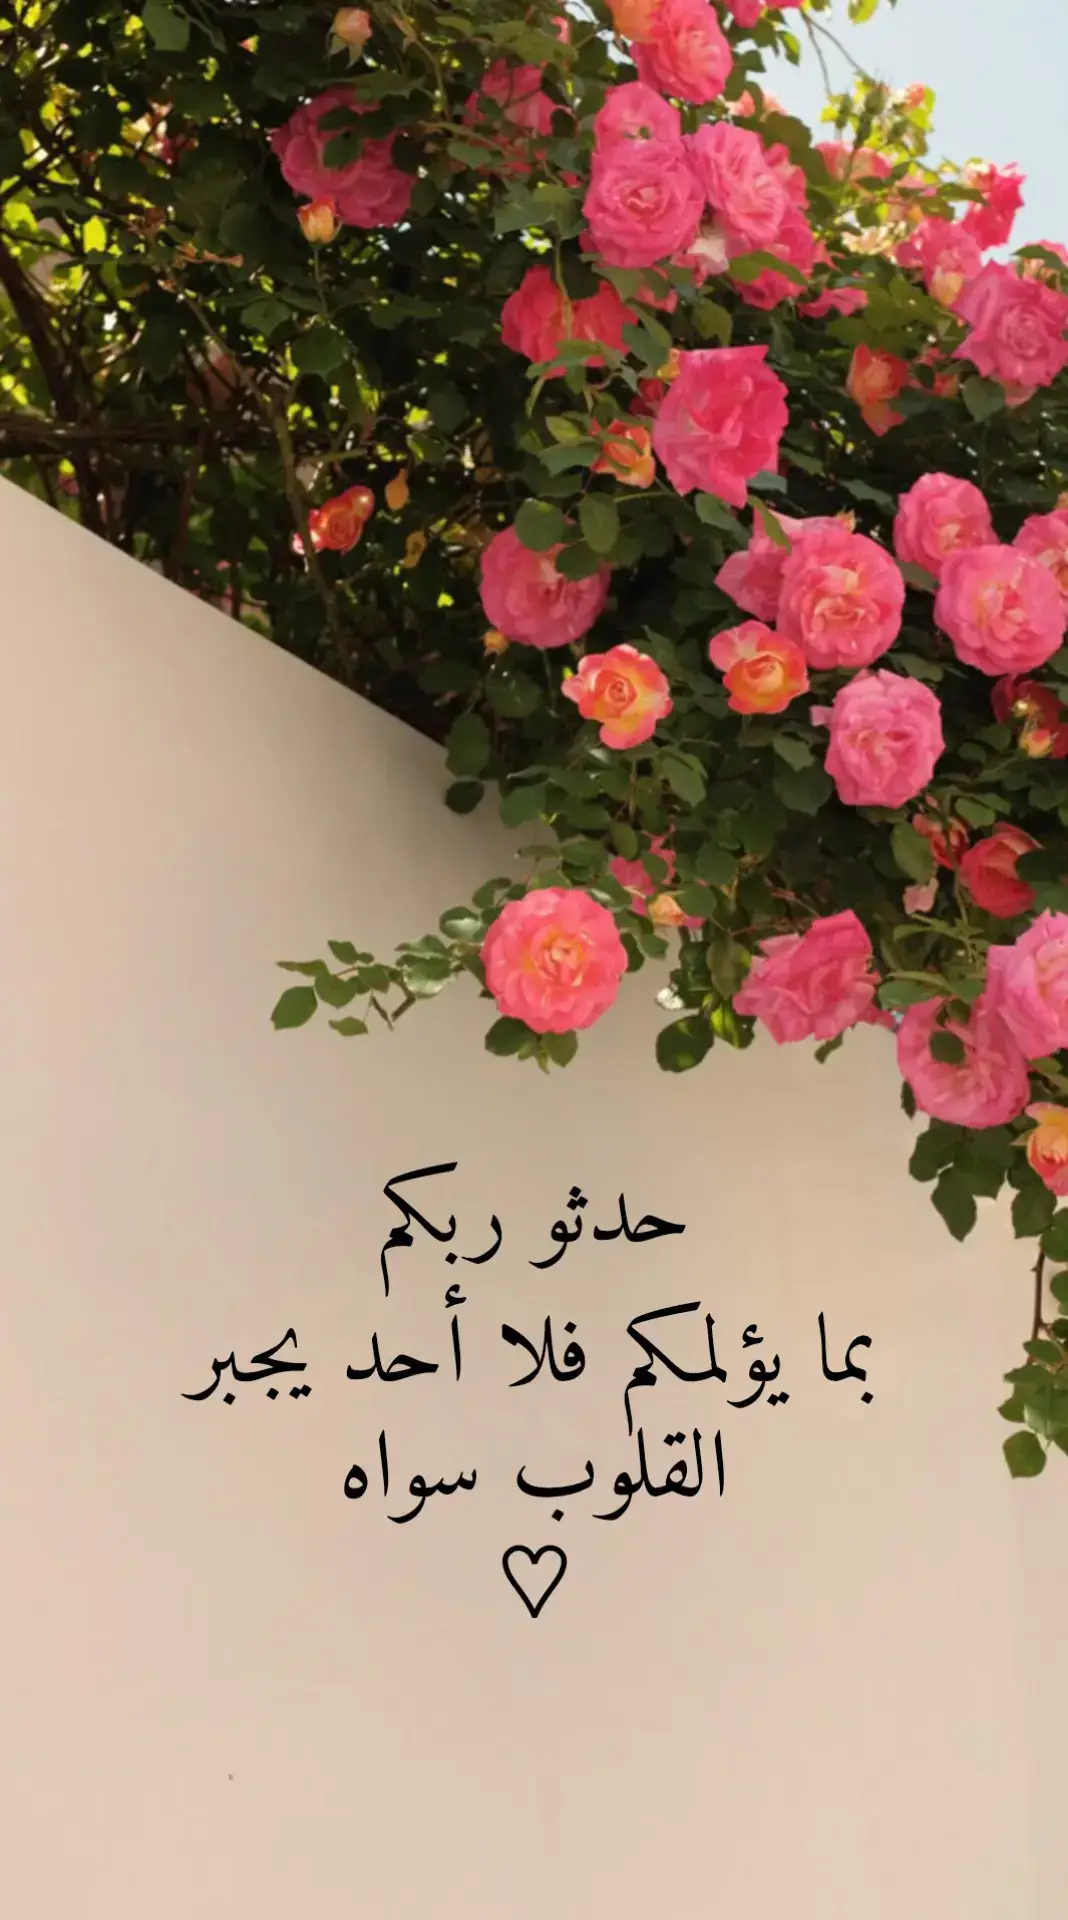 حدثو ربكم
بما يؤلمكم فلا أحد يجبر
القلوب سواه
♡